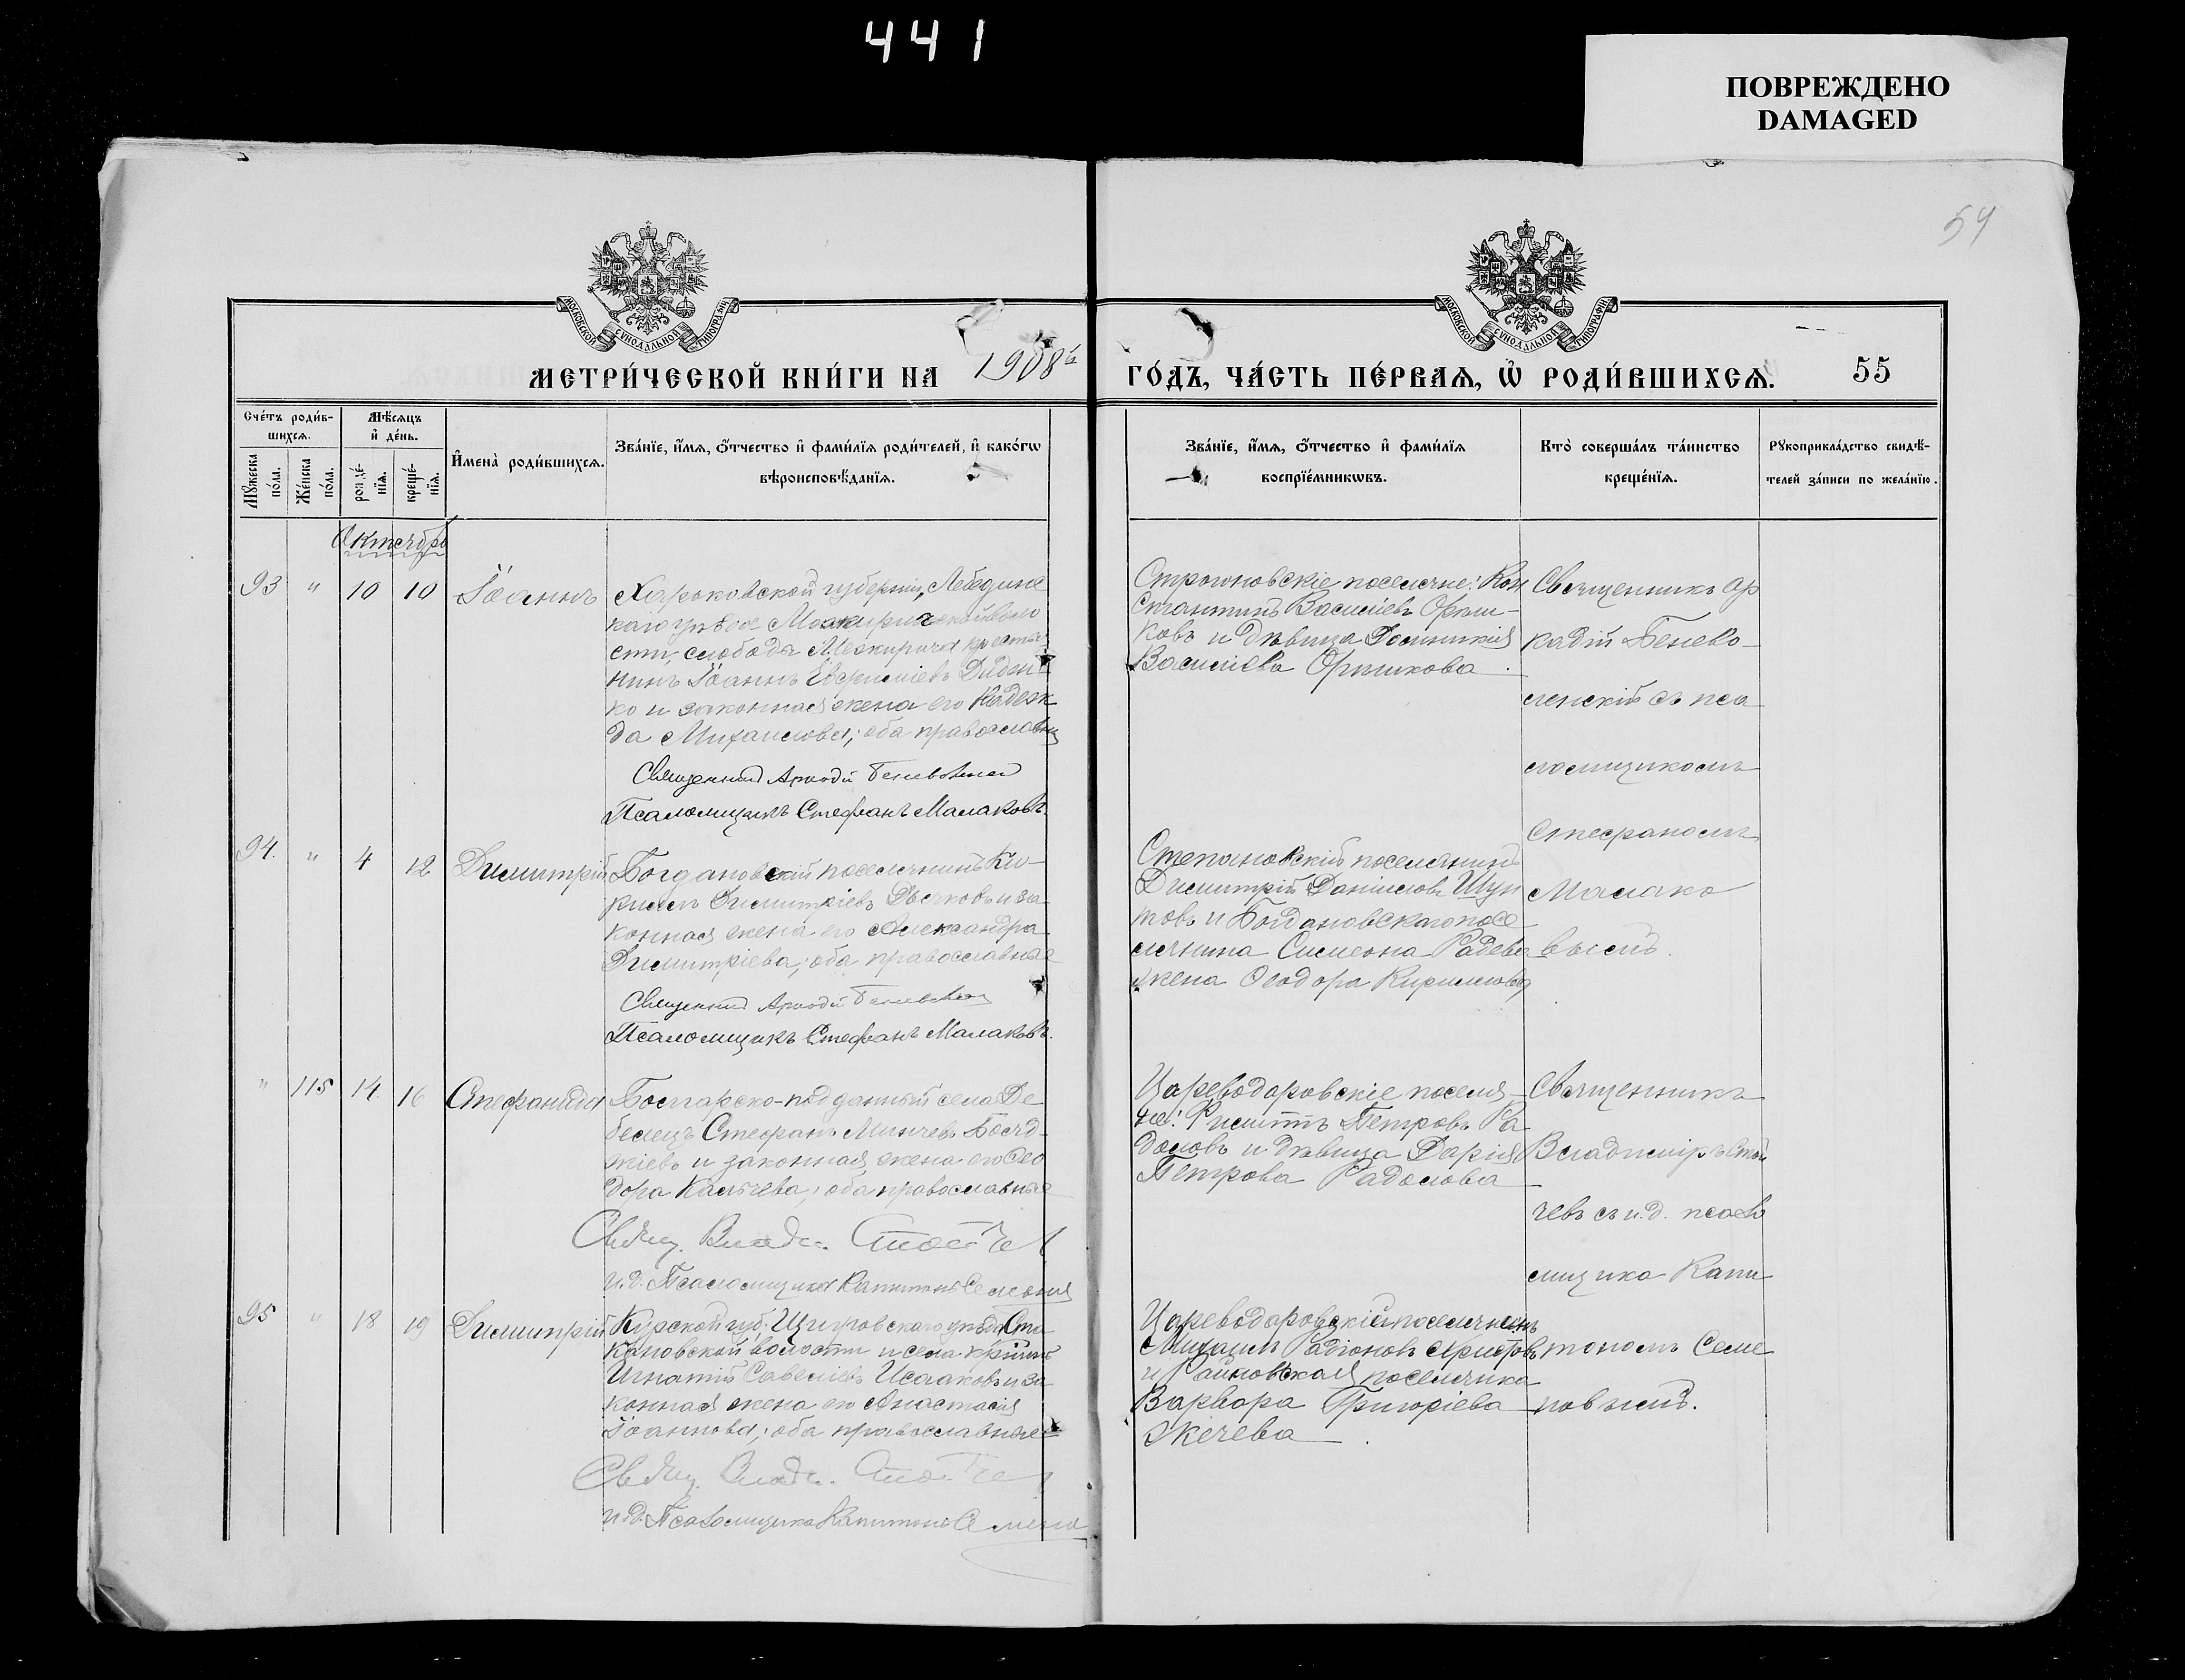 441
ПОВРЕЖДЕНО
DAMAGED
54
МОСКОВСКОЙ СѴНОДАЛЬНОЙ ТИПОГРАФІИ
МОСКОВСКОЙ СѴНОДАЛЬНОЙ ТИПОГРАФІИ
МЕТРИ́ЧЕСКОЙ КНИ́ГИ НА 1908й ГО́ДЪ, ЧА́СТЬ ПЕ́РВАЯ, Ѡ РОДИ́ВШИХСЯ. 55
Сче́тъ роди́в-
шихся.
Мѣ́сяцъ
и де́нь.
Му́жеска
по́ла.
Же́нска
по́ла.
рожде́-
нія.
креще́-
нія.
Имена̀ роди́вшихся.
Зва́ніе, и́мя, о́тчество и фами́лія роди́телей, и како́гѡ
вѣроисповѣ́данія.
Зва́ніе, и́мя, о́тчество и фами́лія
воспріе́мниковъ.
Кто̀ соверша́лъ та́инство
креще́нія.
Рукоприкла́дство свидѣ́-
телей за́писи по жела́нію.
Октябрь
93 " 10 10 Іоаннъ
Харьковской губерніи, Лебединс
каго уѣзда Межирич­ской воло
сти, слободы Межирича крестья
нинъ Іоаннъ Евфиміевъ Диден
ко и законная жена его Надеж
да Михаилова; оба православны
Священникъ Аркадій Беневоленскій
Псаломщикъ Стефанъ Малаковъ.
Строгоновскіе поселяне: Кон
стантинъ Василіевъ Орма-
ковъ и дѣвица Домникія
Василіева Ормакова.
Священникъ Ар
кадій Бенево-
ленскій съ пса
ломщикомъ
Стефаномъ
Малако
вымъ.
94. " 4 12 Димитрій
Богдановскій поселянинъ Ки-
риллъ Димитріевъ Дьячковъ и за-
конная жена его Александра
Димитріева; оба православные
Священникъ Аркадій Беневоленскій
Псаломщикъ Стефанъ Малаковъ.
Степановскій поселянинъ
Димитрій Даніиловъ
товъ и Богдановскаго посе-
лянина Симеона Радева
жена Ѳеодора Кириллова
" 115 14. 16 Стефанида
Болгарско-подданный села Де-
белецъ Стефанъ Минчевъ Бояд-
жіевъ и законная жена его Ѳео
дора Калчева; оба православные
Свящ. Влад. Стойчев
И.д. Псаломщика Капитонъ Семеновъ
Цареводаровскіе поселя-
не: Филиппъ Петровъ Ра-
доловъ и дѣвица Дарія
Петрова Радолова
Священникъ
Владиміръ Стой
чевъ съ и.д. псало
мщика Капи
тономъ Семе
новымъ.
95 " 18 19 Димитрій
Курской губ. Щигровскаго уѣзда Ста
кановской волости и села кр.
Игнатій Савеліевъ Исааковъ и за
конная жена его Анастасія
Іоаннова; оба православные
Свящ. Влад. Стойчев
И.д. Псаломщика Капитонъ Семенов
Цареводаровскій поселянинъ
Михаилъ Радіоновъ Христовъ
и Райновская поселянка
Варвара Григоріева
Жечева.